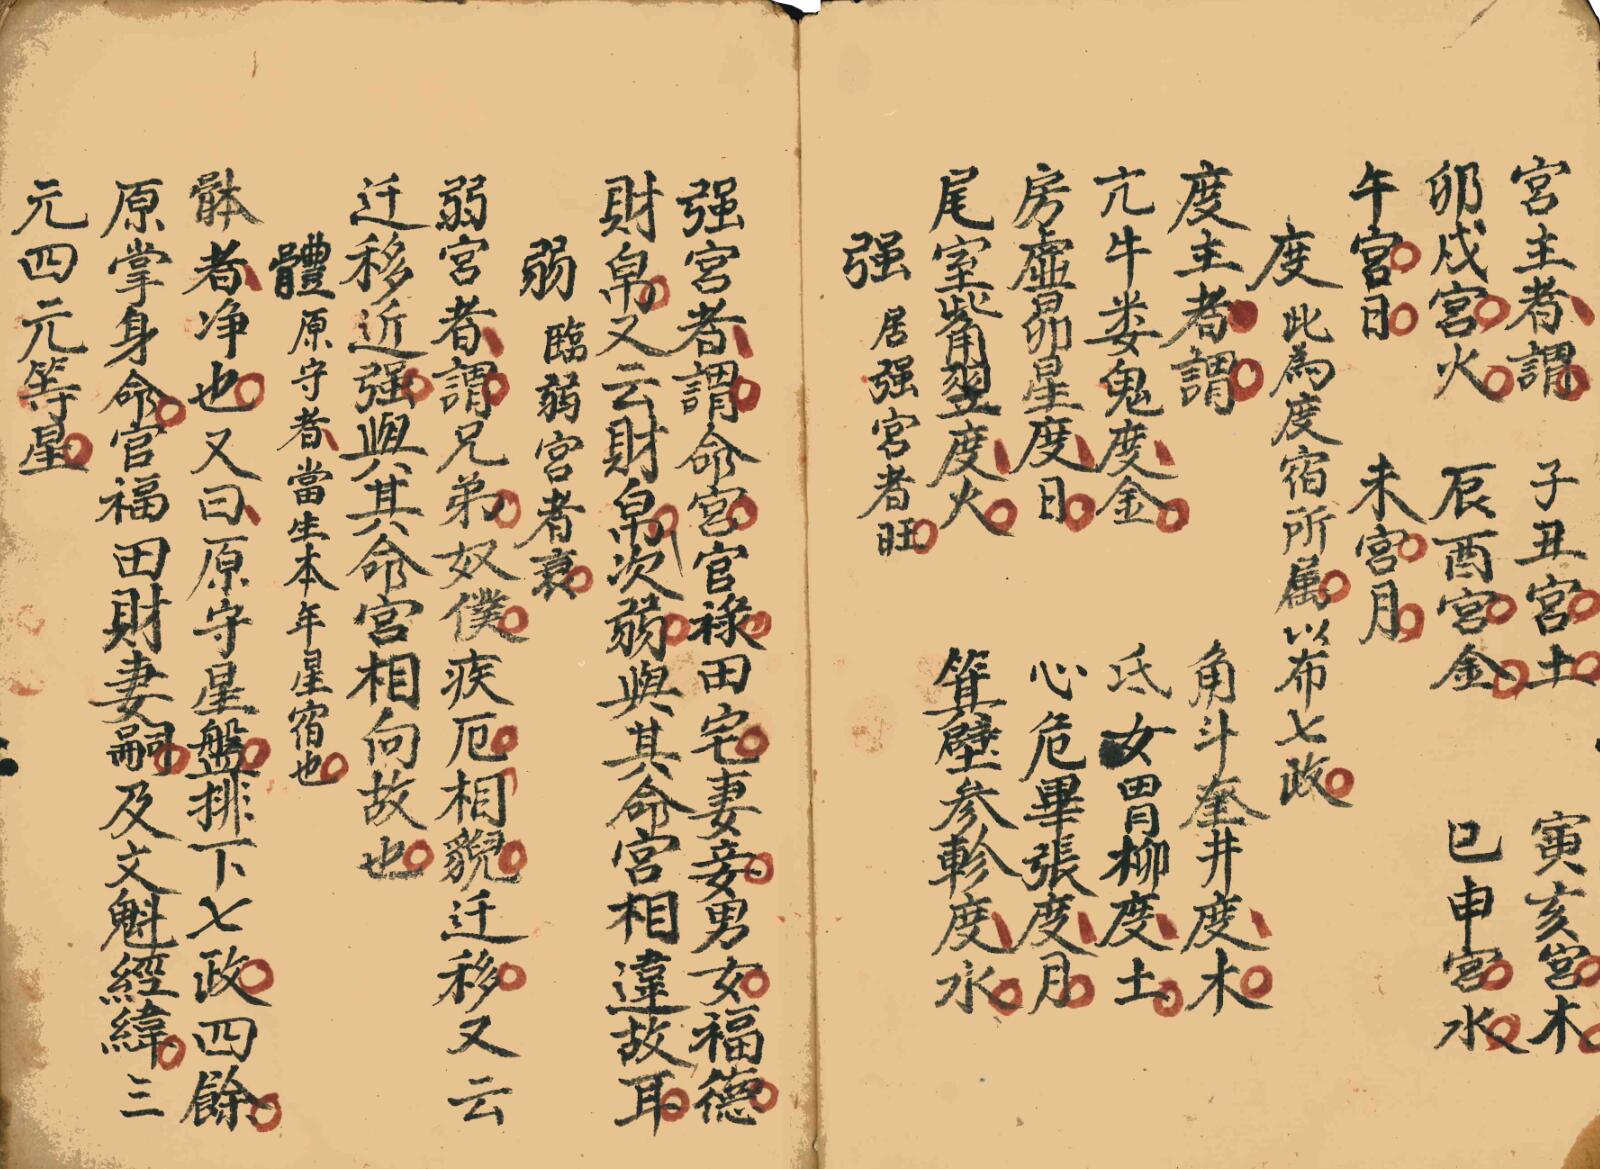 宮主者謂 子丑宮土 寅亥宮木
卯戍宮火 辰酉宮金 巳申宮水
午宮日 未宮月
度 此為度宿所属以布七政
度主者謂 角斗奎井度木
亢牛娄鬼度金 氐女胃柳度土
房虛昴星度日 心危畢張度月
尾室觜翌度火 箕壁参軫度水
强 居强宮者旺
强宮者謂命宮官祿田宅妻妾男女福德
財帛又云財帛次弱與其命宮相違故耳
弱 臨弱宮者衰
弱宮者謂兄弟奴僕疾厄相貌迁移又云
迁移近强與其命宮相向故也
體 原守者當生本年星宿也
骵者净也又曰原守星盤排下七政四餘
原掌身命官福田財妻嗣及文魁經緯三
元四元等星